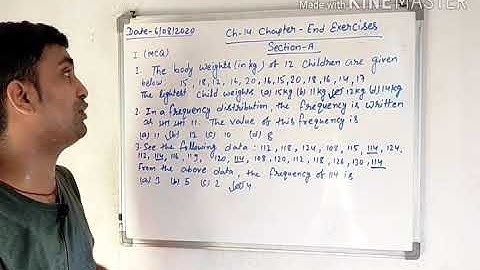 Made with
KINEMASTER
Date-6/08/2020 Ch-14 Chapter-End Exercises
Section-A
I (MCQ)
1. The body weights (in kg) of 12 children are given
below 15, 18, 12, 16, 20, 16, 15, 20, 18, 16, 14, 17
The lightest child weights (a) 15kg (b) 11kg (c) 12kg (d) 14kg
2. In a frequency distribution, the frequency is written
as The value of this frequency is
(a) 11 (b) 12 (c) 10 (d) 8
3. See the following data :- 112, 118, 124, 108, 115, 114, 124,
112, 114, 116, 119, 120, 114, 108, 120, 112, 118, 126, 130, 114
From the above data, the frequency of 114 is
(a) 3 (b) 5 (c) 2 (d) 4